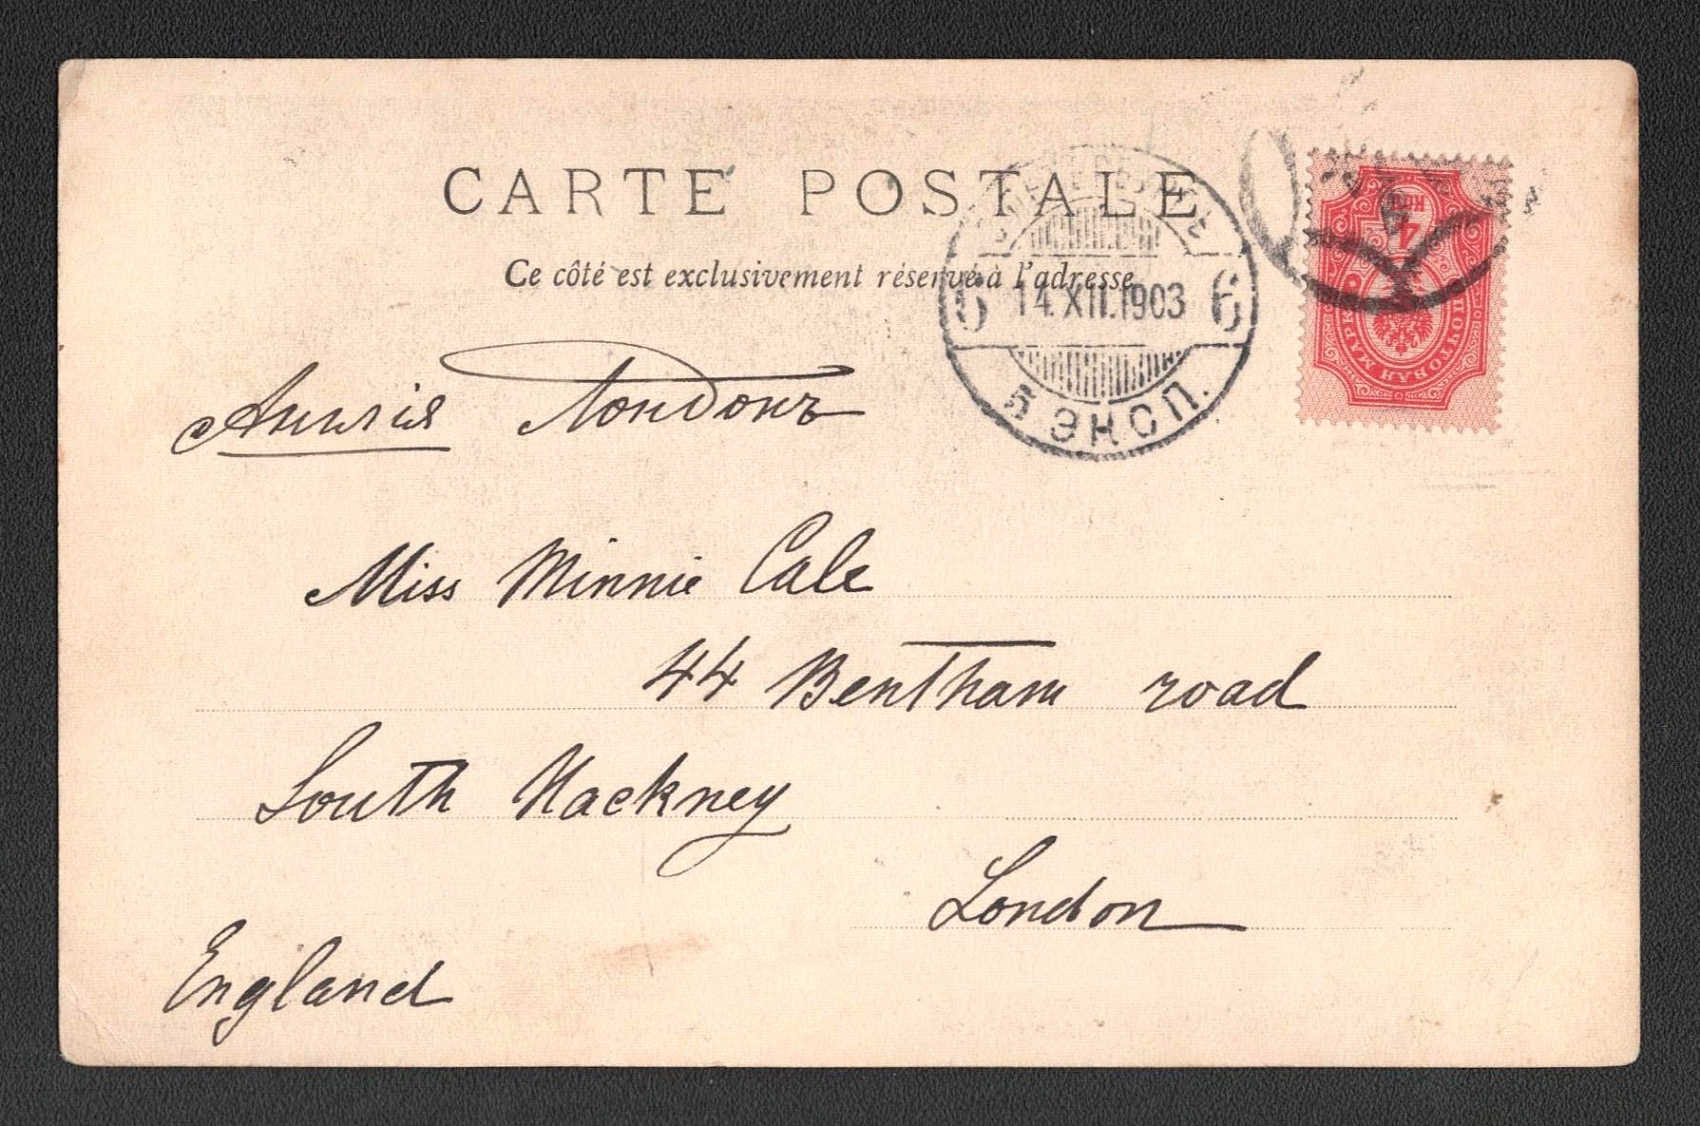 CARTE POSTALE
Ce côté est exclusivement réservé à l'adresse
6 14.XII.1903 6
5 ЭКСП.
4 КОП
ПОЧТОВАЯ МАРКА
Англія Лондонъ
Miss Minnie Cale
44 Bentham road
South Hackney
London
England